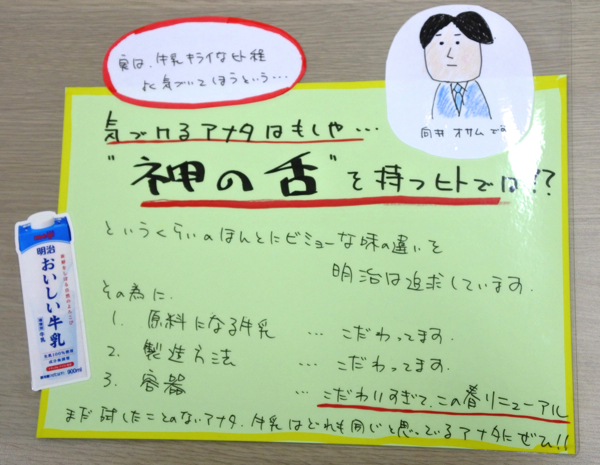 実は、牛乳キライなヒト程
よく気づいてしまうという…
向井 オサムです
気づけるアナタはもしや…
"神の舌"を持つヒトでは!?
というくらいのほんとにビミョーな味の違いを
明治は追求しています。
その為に、
1. 原料になる牛乳 … こだわってます。
2. 製造方法 … こだわってます。
3. 容器 … こだわりすぎて、この春リニューアル
まだ試したことのないアナタ、牛乳はどれも同じと思っているアナタにぜひ!!
明治
おいしい牛乳
900ml